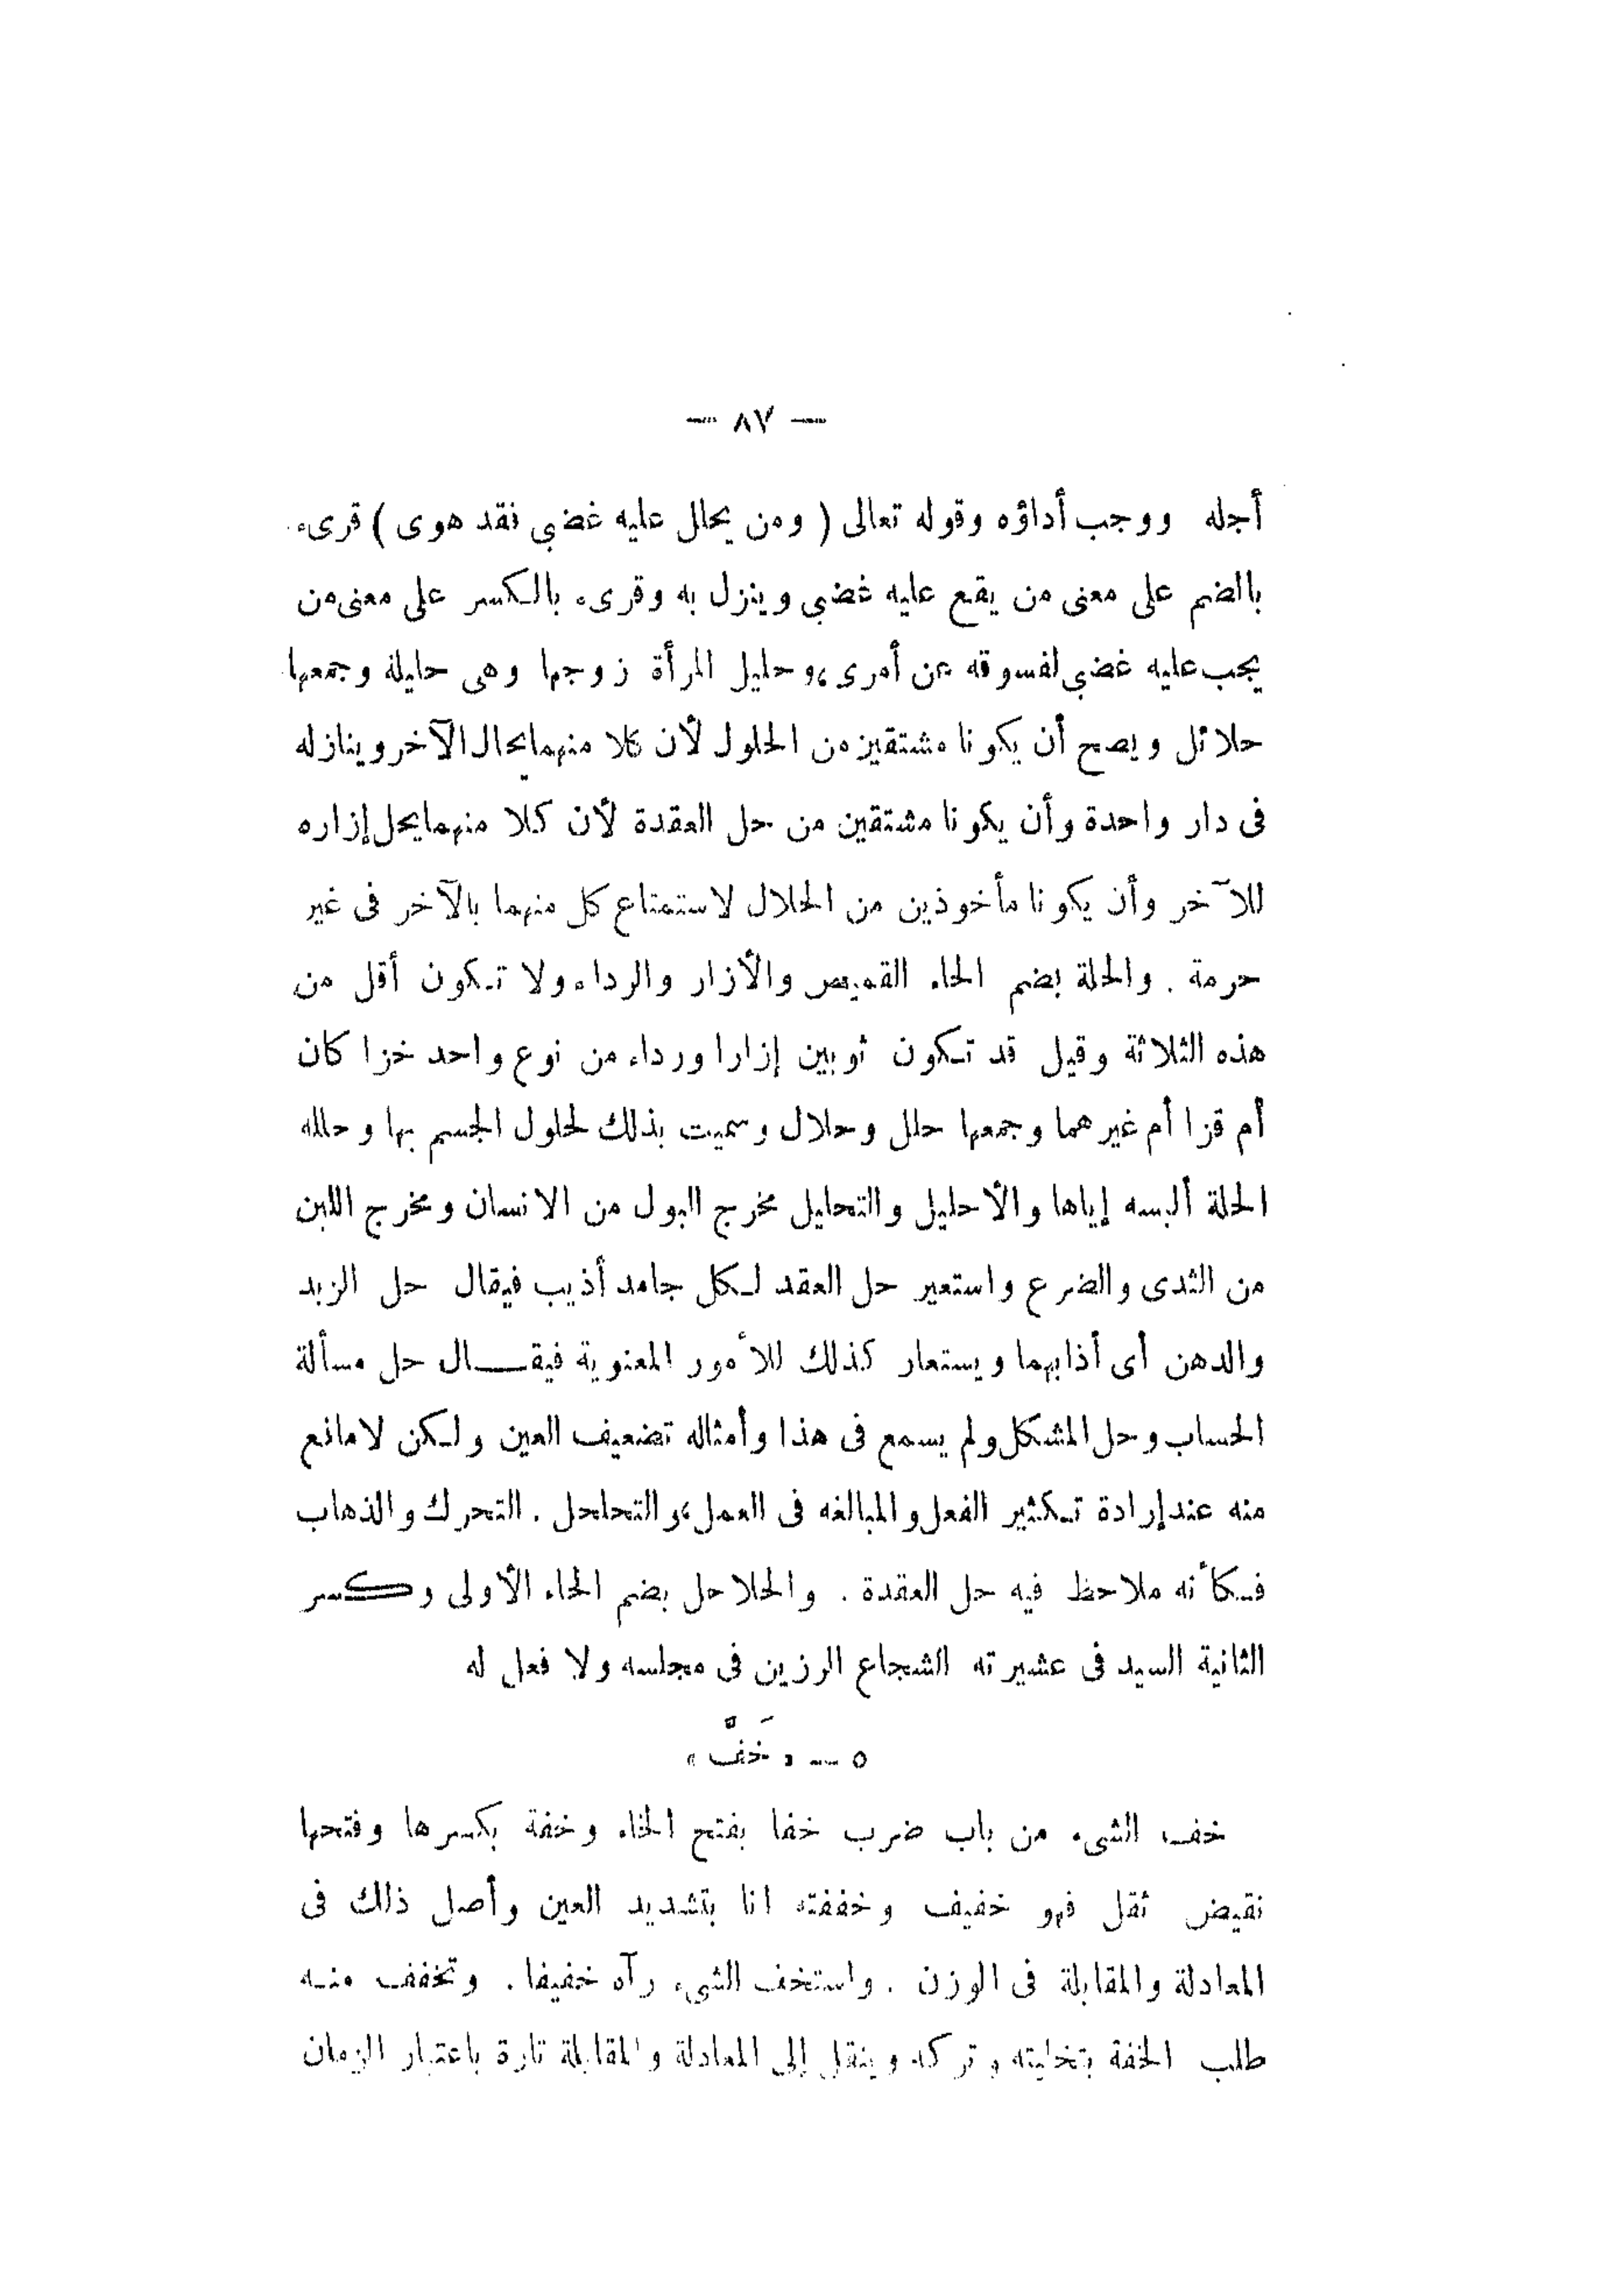 — ٨٧ —
أجله ووجب أداؤه وقوله تعالى ( ومن يحلل عليه غضبي نقد هوى ) قرىء
بالضم على معنى من يقع عليه غضبي وينزل به وقرىء بالكسر على معنى من
يجب عليه غضبي لفسوقه عن أمرى، وحليل المرأة زوجها وهى حليلة وجمعها
حلائل ويصح أن يكونا مشتقين من الحلول لأن كلا منهما يحال الآخر وينازله
فى دار واحدة وأن يكونا مشتقين من حل العقدة لأن كلا منهما يحل إزاره
للآخر وأن يكونا مأخوذين من الحلال لاستمتاع كل منهما بالآخر فى غير
حرمة . والحلة بضم الحاء القميص والأزار والرداء ولا تكون أقل من
هذه الثلاثة وقيل قد تكون ثوبين إزارا ورداء من نوع واحد خزا كان
أم قزا أم غيرهما وجمعها حلل وحلال وسميت بذلك لحلول الجسم بها وحلله
الحلة ألبسه إياها والأحليل والتحليل مخرج البول من الانسان ومخرج اللبن
من الثدى والضرع واستعير حل العقد لكل جامد أذيب فيقال حل الزبد
والدهن أى أذابهما ويستعار كذلك للأمور المعنوية فيقال حل مسألة
الحساب وحل المشكل ولم يسمع فى هذا وأمثاله تضعيف العين ولكن لامانع
منه عند إرادة تكثير الفعل والمبالغه فى العمل، والتحلحل . التحرك والذهاب
فكأنه ملاحظ فيه حل العقدة . والحلاحل بضم الحاء الأولى وكسر
الثانية السيد فى عشيرته الشجاع الرزين فى مجلسه ولا فعل له
٥ — « خَفَّ »
خف الشىء من باب ضرب خفا بفتح الخاء وخفة بكسرها وفتحها
نقيض ثقل فهو خفيف وخففته انا بتشديد العين وأصل ذلك فى
المعادلة والمقابلة فى الوزن . واستخف الشىء رآه خفيفا . وتخفف منه
طلب الخفة بتخليته وتركه وينقل إلى المعادلة والمقابلة تارة باعتبار الزمان